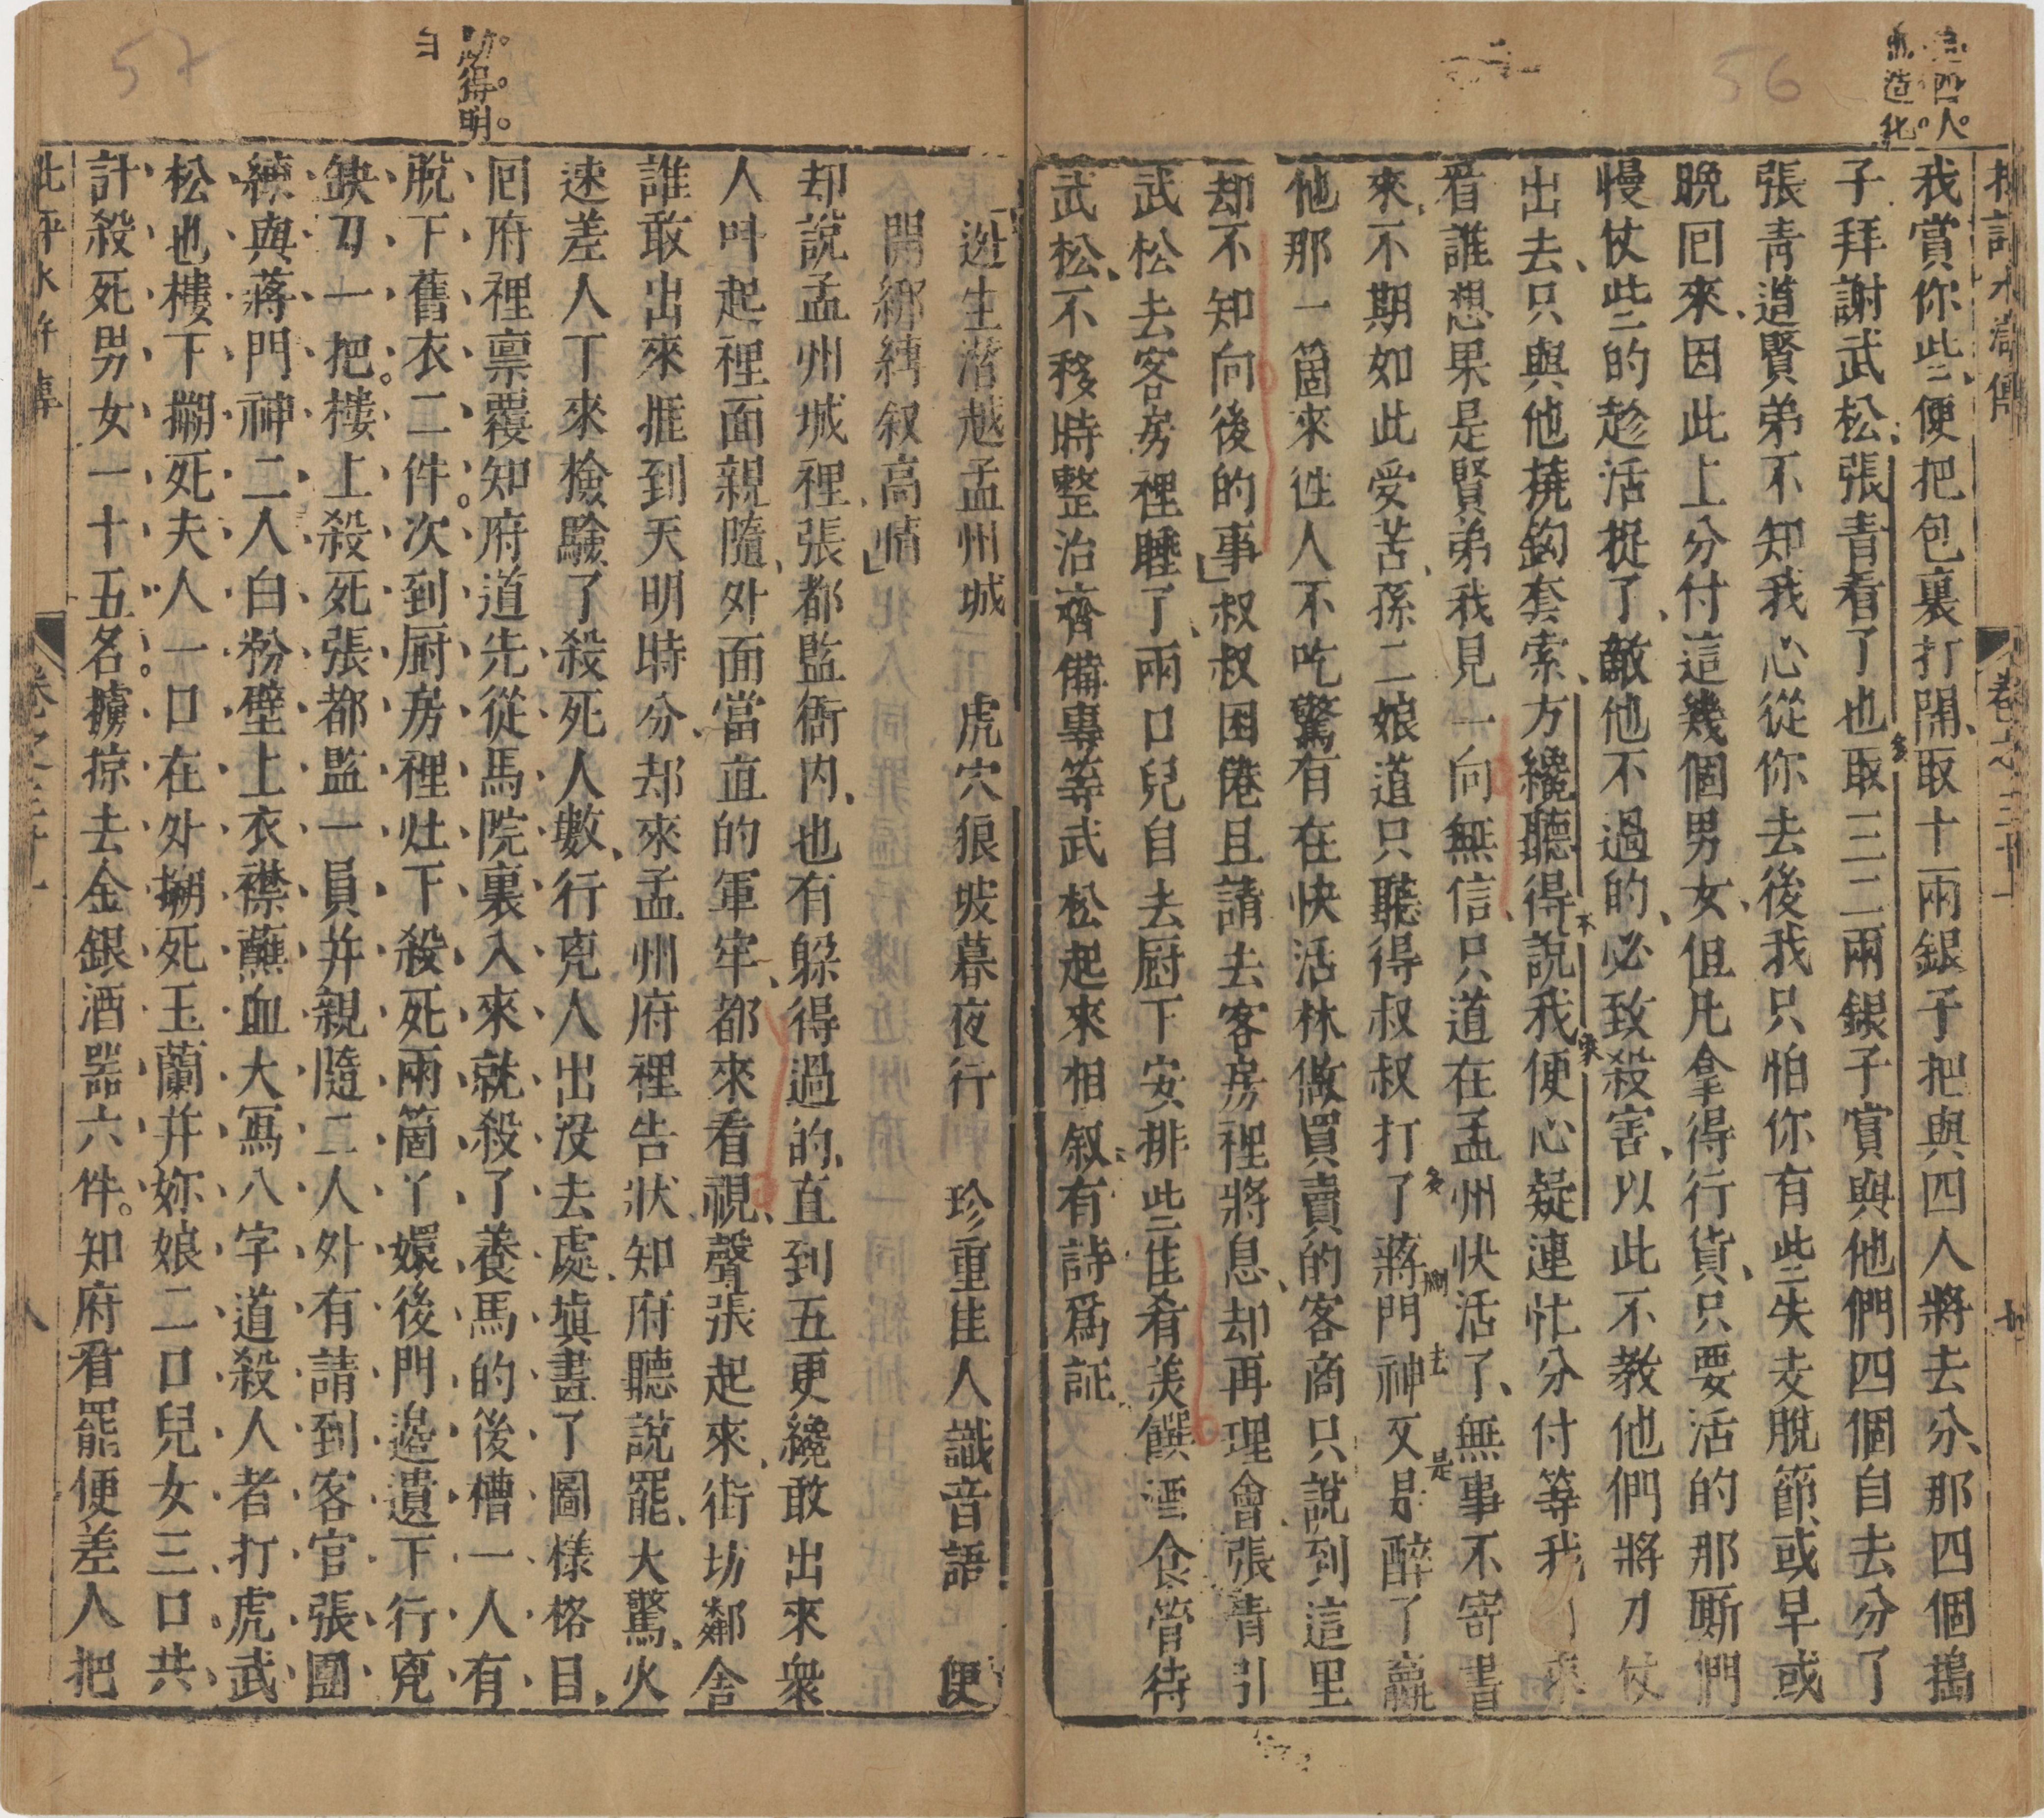 56
四人
造化
卷之三十一
我賞你些、便把包裹打開、取十兩銀子把與四人將去分、那四個搗
子拜謝武松、張青看了也取三二兩銀子賞與他們四個自去分了
張青道賢弟不知我心從你去後我只怕你有些失支脫節、或早或
晚囘來、因此上分付這幾個男女、但凡拿得行貨、只要活的那厮們
慢仗些的趂活捉了、敵他不過的、必致殺害、以此不教他們將刀仗
出去、只與他撓鈎套索、方纔聽得說我便心疑連忙分付等我來
看誰想果是賢弟我見一向無信、只道在孟州快活了、無事不寄書
來、不期如此受苦、孫二娘道只聽得叔叔打了蔣門神又是醉了贏
他那一箇來徃人不吃驚有在快活林做買賣的客商只說到這里
却不知向後的事」叔叔困倦且請去客房裡將息、却再理會、張青引
武松去客房裡睡了、兩口兒自去厨下安排些佳肴美饌酒食管待
武松、不移時整治齊備專等武松起來相叙、有詩爲証
57
得明
白
逃生潛越孟州城 虎穴狼坡暮夜行 珍重佳人識音語 便
開綁縛叙高情」
却說孟州城裡、張都監衙内、也有躱得過的、直到五更纔敢出來衆
人呌起裡面親隨、外面當直的軍牢、都來看視、聲張起來、街坊鄰舍
誰敢出來捱到天明時分、却來孟州府裡告狀知府聽說罷、大驚、火
速差人丁來檢驗了殺死人數、行兇人出没去處、塡畫了圖樣格目、
囘府裡禀覆知府道先從馬院裏入來就殺了養馬的後槽一人有
脫下舊衣二件。次到厨房裡灶下殺死兩箇丫嬛後門邉遺下行兇
鈌刀一把。樓上殺死張都監一員并親隨二人外有請到客官張團
練與蔣門神二人白粉壁上衣襟蘸血大寫八字道殺人者打虎武
松也樓下搠死夫人一口在外搠死玉蘭并妳娘二口兒女三口共
計殺死男女一十五名。擄掠去金銀酒器六件。知府看罷便差人把